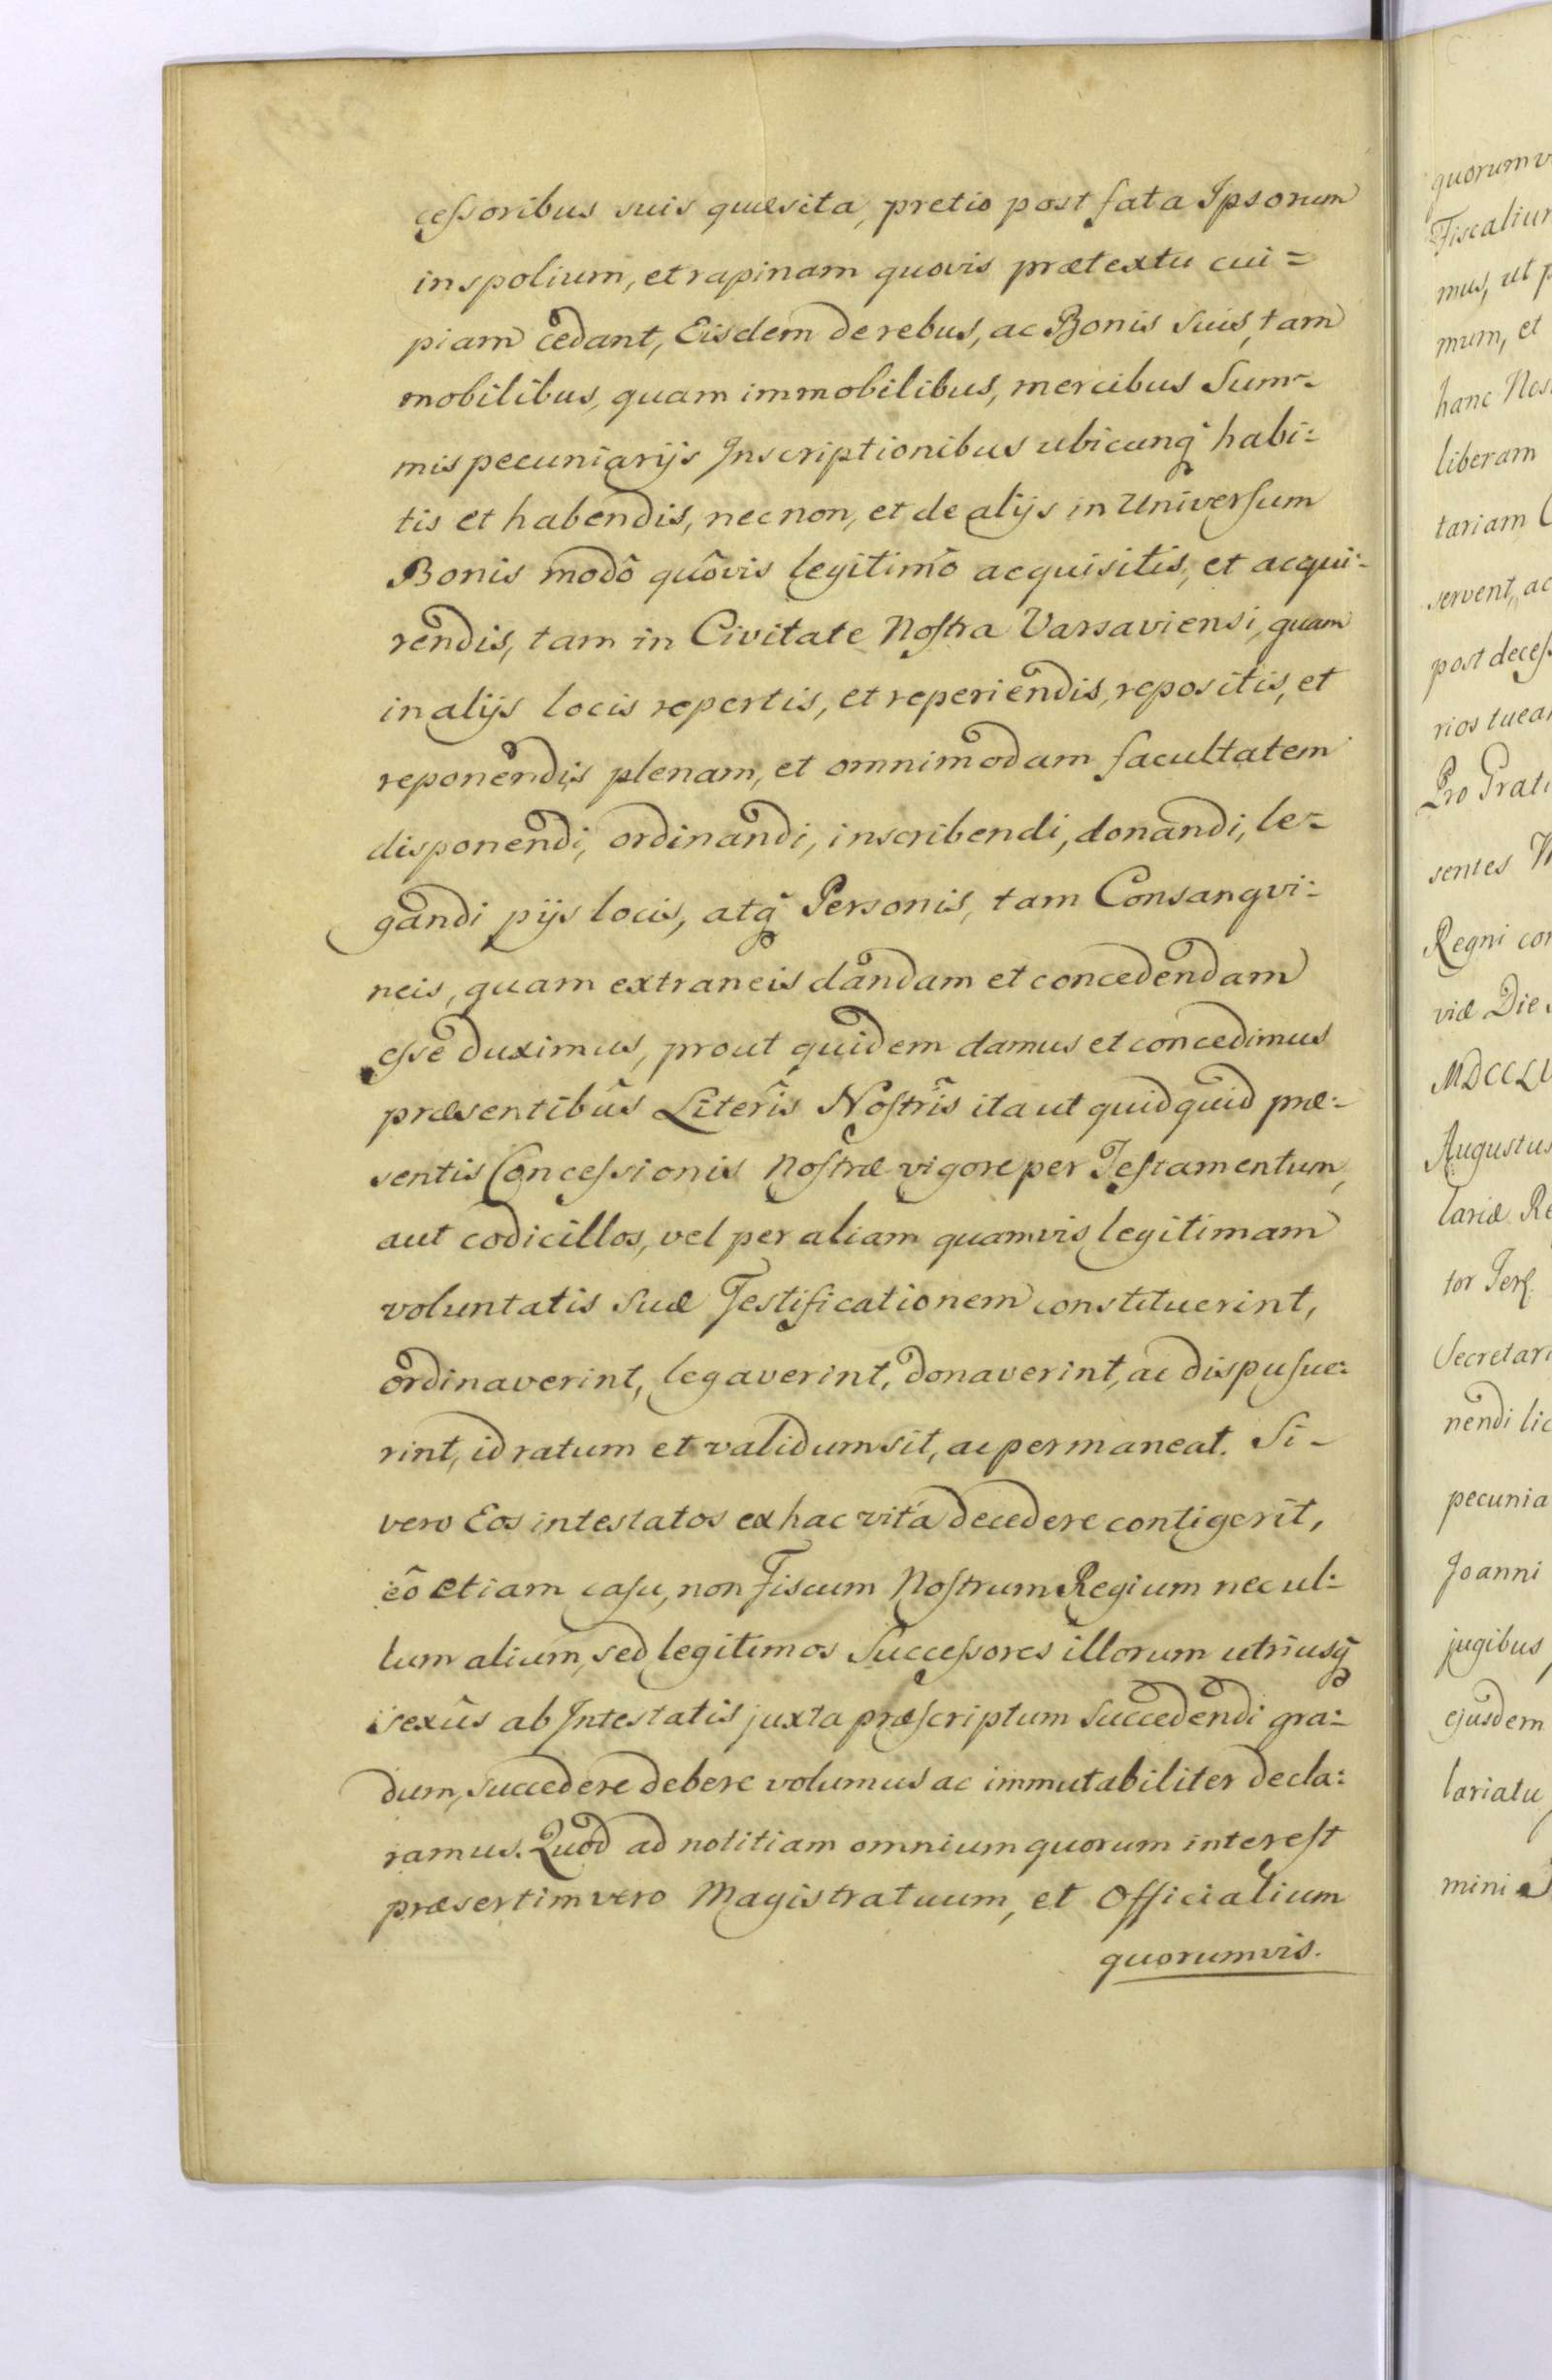 cessoribus suis quæsita, pretio post fata Ipsorum
in spolium, et rapinam quovis prætextu cui=
piam cedant, Eisdem de rebus, ac Bonis Suis, tam
mobilibus, quam immobilibus, mercibus Sum=
mis pecuniarijs Inscriptionibus ubicunq̃ habi=
tis et habendis, nec non, et de alijs in Universum
Bonis modô quôvis legitimô acquisitis, et acqui=
rendis, tam in Civitate Nostra Varsaviensi, quam
in alijs locis repertis, et reperiendis, repositis, et
reponendis plenam, et omnimodam facultatem
disponendi, ordinandi, inscribendi, donandi, le=
gandi pijs locis, atq̃ Personis, tam Consangvi=
neis, quam extraneis dandam et concedendam
esse duximus, prout quidem damus et concedimus
præsentibus Literis Nostris ita ut quidquid præ=
sentis Concessionis Nostræ vigore per Testamentum,
aut codicillos, vel per aliam quamvis legitimam
voluntatis Suæ Testificationem constituerint,
ordinaverint, legaverint, donaverint, ac dispusue=
rint, id ratum et validum sit, ac permaneat. Si=
vero Eos intestatos ex hac vitâ decedere contigerit,
eô etiam casu, non Fiscum Nostrum Regium nec ul=
lum alium, sed legitimos Successores illorum utriusq̃
sexûs ab Intestatis juxta præscriptum Succedendi gra=
dum, succedere debere volumus ac immutabiliter decla=
ramus. Quod ad notitiam omnium quorum interest
præsertim vero Magistratuum, et Officialium
quorumvis.
quorumv
Fiscaliu
mus, ut p
mum, et
hanc Nos
liberam
tariam
servent, ac
post decess
rios tuea
Pro Grati
sentes
Regni con
viæ Die
MDCCL
Augustus
lariæ Re
tor
Secretari
nendi lic
pecunia
Joanni
jugibus
ejusdem
lariatu
mini